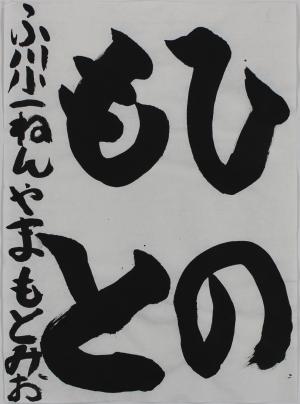 ひの
もと
ふ川小一ねんやまもとみお